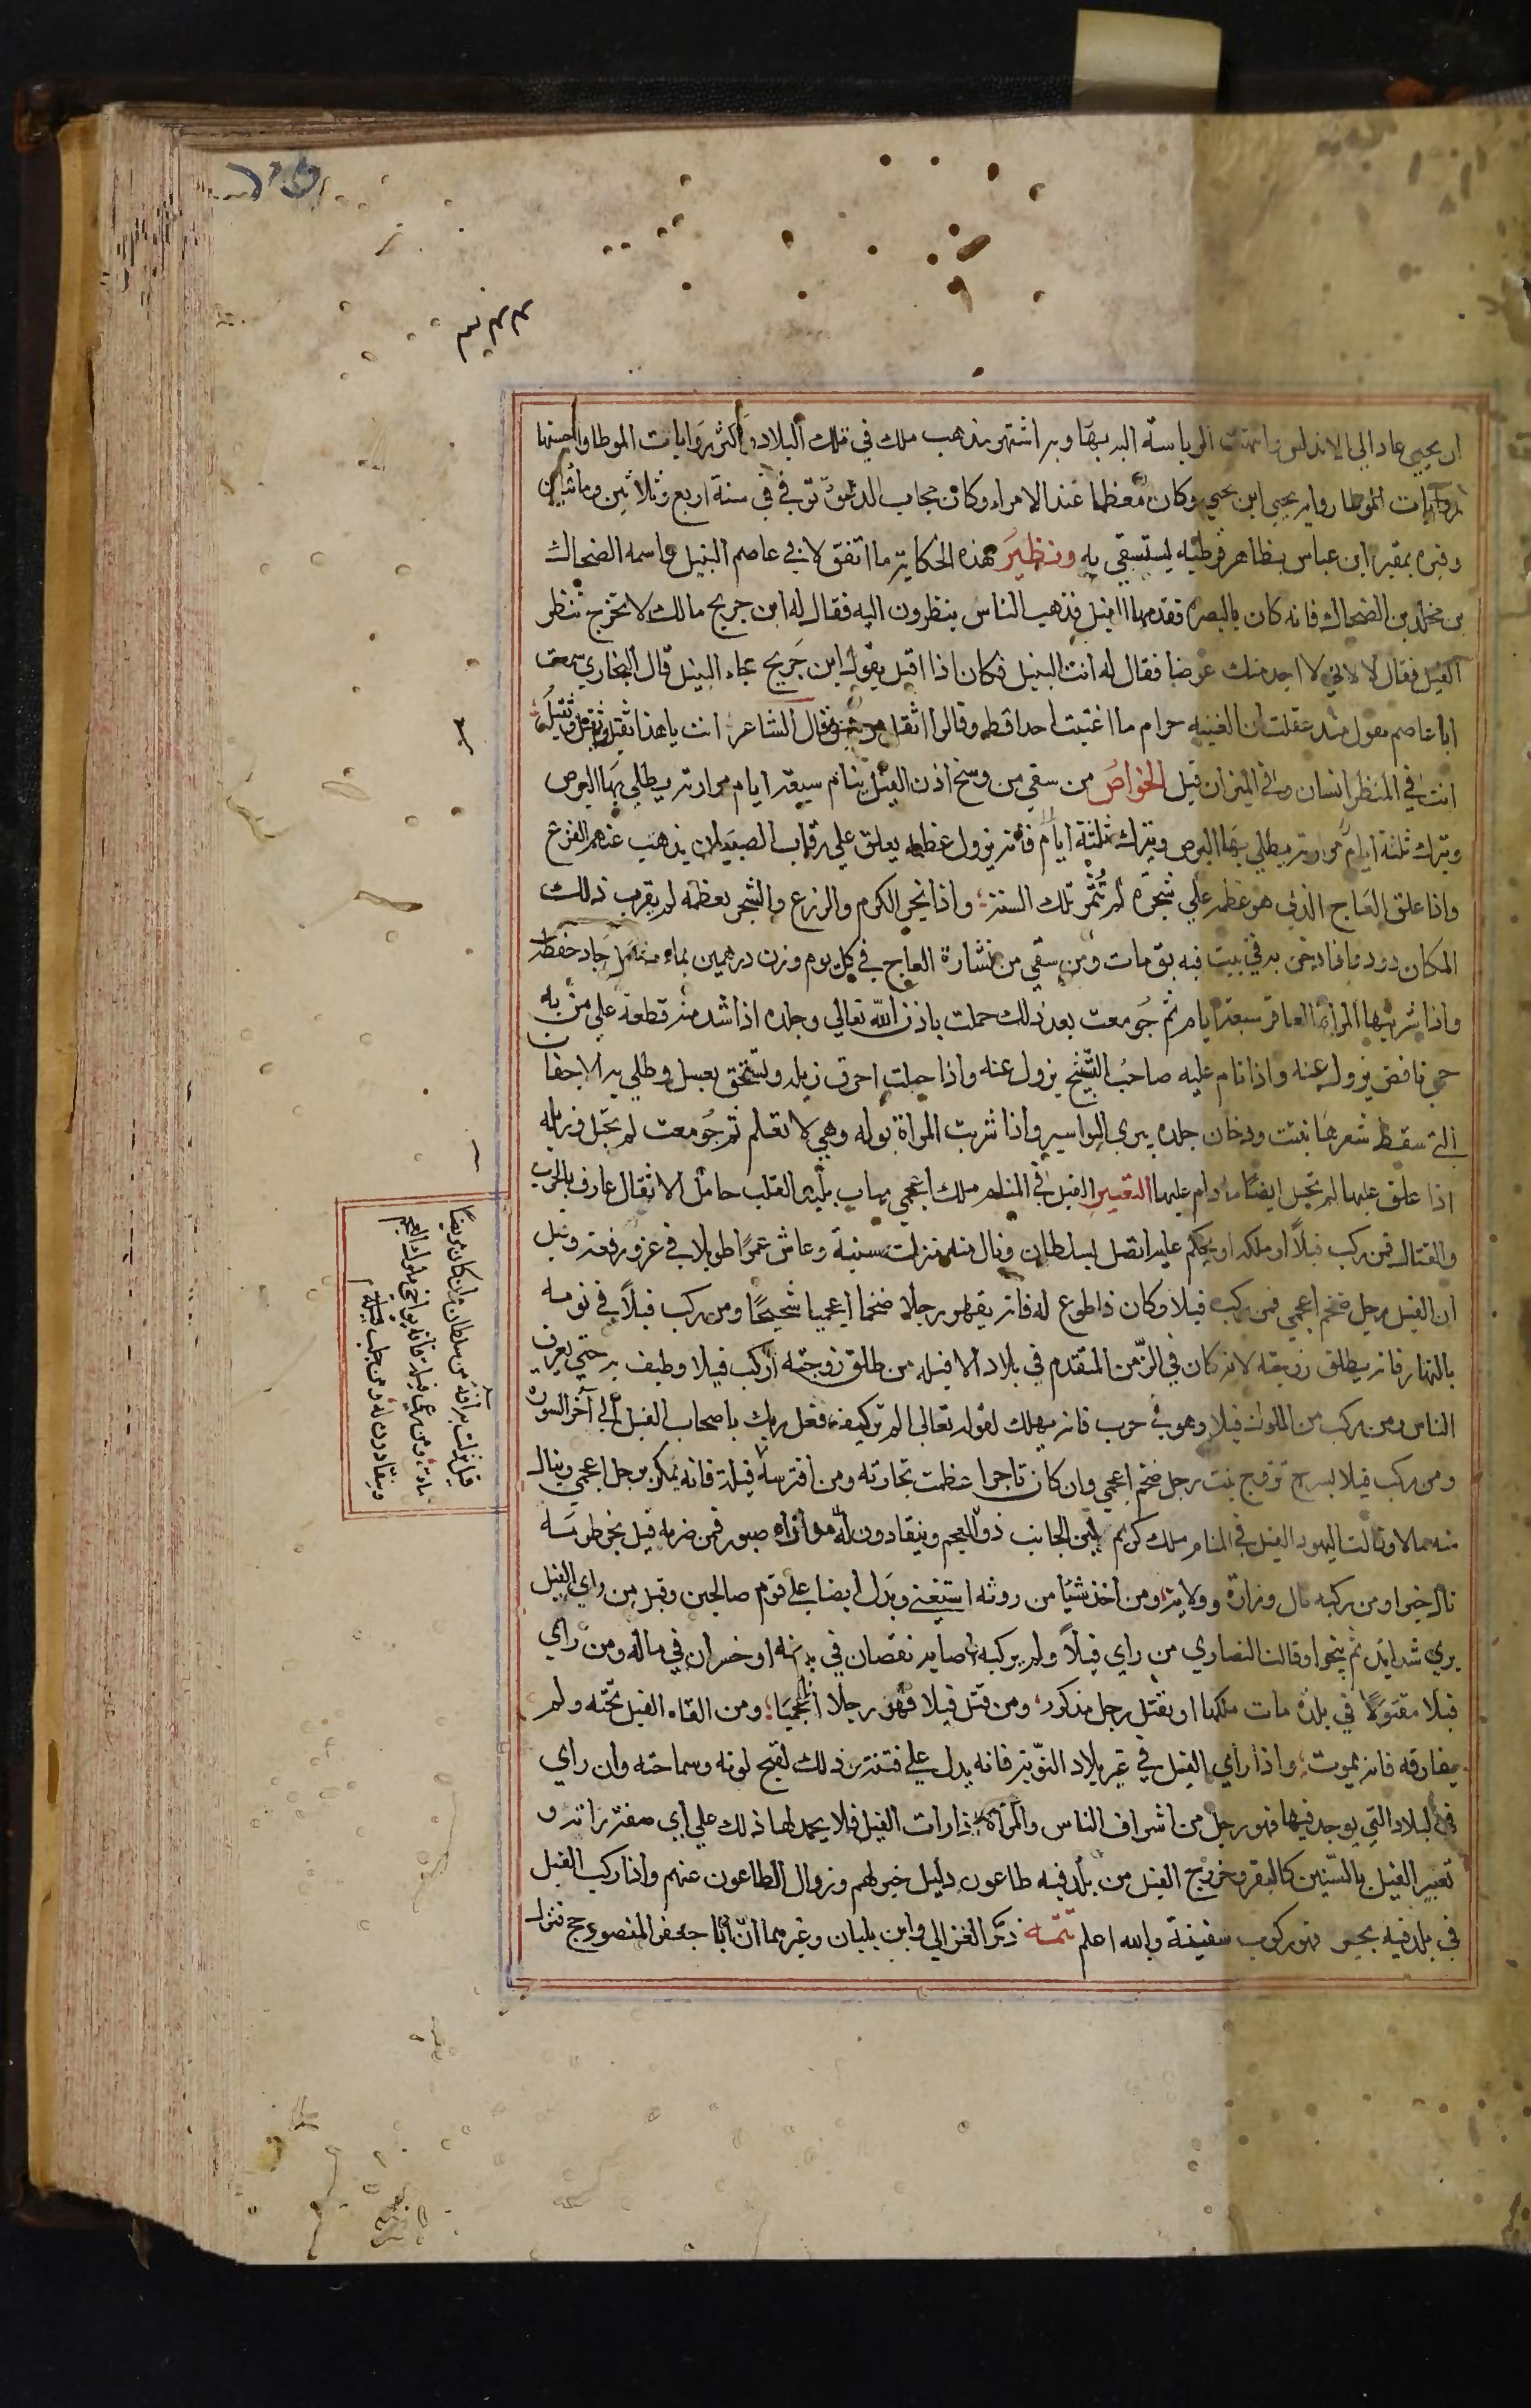 ان يحيى عاد الي الاندلس وانتهت الرياسة اليه بها وبه اشتهر مذهب ملك في تلك البلاد واكثر روايات الموطا واحسنها
روايات الموطا رواية يحيى ابن يحيى وكان معظما عند الامراء وكان مجاب الدعوة توفي في سنة اربع وثلاثين ومائتين
وقبره بمقبرة ابن عباس بظاهر قرطبه يستسقي به ونظير هذه الحكاية ما اتفق لابي عاصم النبيل واسمه الضحاك
بن مخلد بن الضحاك فانه كان بالبصرة فقدمها الفيل فذهب الناس ينظرون اليه فقال له ابن جريح مالك لا تخرج تنظر
الفيل فقال لا لاني لا اجد منك عوضا فقال له انت النبيل فكان اذا اقبل يقول ابن جَريح جاء النبيل قال البخاري سمعت
ابا عاصم يقول منذ عقلت ان الغيبه حرام ما اغتبت احدا قط وقالوا اثقل من فيل وقال الشاعر انت يا هذا ثقيل وثقيل وثقيل
انت في المنظر انسان وفي الميزان فيل الخواص من سقي من وسخ اذن الفيل ينام سبعة ايام مرارته يطلي بها البرص
ويترك ثلثة ايام مرارته يطلي بها البرص ويترك ثلثة ايام فانه يزول عظمه يعلق علي رقاب الصبيان يذهب عنهم الفزع
واذا علق العاج الذي هو عظمه علي شجرة لم تُثمر تلك السنة واذا بخر الكرم والزرع والشجر بعظمه لم يقرب ذلك
المكان دود واذا دخن به في بيت فيه بق مات ومن سقي من نشارة العاج في كل يوم وزن درهمين بماء وعسل جاد حفظه
واذا شربتها المراة العاقر سبعة ايام ثم جُومعت بعد ذلك حملت باذن الله تعالي وجلده اذا شد منه قطعة علي من به
حمي نافض يزول عنه واذا نام عليه صاحبُ التشنج يزول عنه واذا احرق زبله وسُحق بعسل وطلي به الاجفان
التي سقط شعرها نبت ودخان جلده يبري البواسير واذا شربت المراة بوله وهي لا تعلم ثم جُومعت لم تحبل وزبله
اذا علق عليها لم تحبل ايضًا ما دام عليها التعبير الفيل في المنام ملك اعجمي مهاب بليد القلب حامل الاثقال عارف بالحرب
والقتال فمن ركب فيلًا او ملكه او يحكم عليه اتصل بسلطان ونال منه منزلة سنية وعاش عمرًا طويلا في عز ورفعة وقيل
ان الفيل رجل ضخم اعجمي فمن ركب فيلا وكان ذا طوع له فانه يقهر رجلا ضخما اعجميا شحيحًا ومن ركب فيلًا في نومه
بالنهار فانه يطلق زوجته لانه كان في الزمن المتقدم في بلاد الافيله من طلق زوجته اركب فيلا وطيف به حتي يعرفه
الناس ومن ركب من الملوك فيلا وهو في حرب فانه يهلك لقوله تعالي الم تر كيف فعل ربك باصحاب الفيل الي آخر السورة
ومن ركب فيلا بسرج تزوج بنت رجل ضخم اعجمي وان كان تاجرا عظمت تجارته ومن افترسه فيلة فانه يمكن برجل اعجمي وينال
منه مالا وقالت اليهود الفيل في المنام ملك كريم لين الجانب ذو اللجم وينقادون له مداراه صبور فمن ضربه فيل بخرطومه
نال خيرا ومن ركبه نال وزارة وولاية ومن اخذ شيًا من روثه استغني ويدل ايضا علي قوم صالحين وقيل من راي الفيل
يري شدايد ثم ينجوا وقالت النصاري من راي فيلًا ولم يركبه اصابه نقصان في بدنه او خسران في ماله ومن راي
فيلا مقتولًا في بلدة مات ملكها او يقتل رجل مذكور ومن قتل فيلا قهر رجلا اعجميًا ومن القاه الفيل تحته ولم
يفارقه فانه يموت واذا رأي الفيل في غير بلاد النوبة فانه يدل علي فتنة وذلك لقبح لونه وسماجته وان راي
في البلاد التي يوجد فيها فهو رجل من اشراف الناس والمراة اذا رات الفيل فلا يحمد لها ذلك علي اي صفة راته و
تعبير الفيل بالسنين كالبقر وخروج الفيل من بلد فيه طاعون دليل خير لهم وزوال الطاعون عنهم واذا ركب الفيل
في بلد فيه بحر فهو ركوب سفينة والله اعلم تتمة ذكر الغزالي وابن بلبان وغيرهما انّ ابا جعفر المنصور حج فنزل
قيل نزلت به آفة من سلطان وان كان مريضًا
مات ومن رعي فيلة فانه يواخي ملوك العجم
وينقادون له ومن حلب فيلة